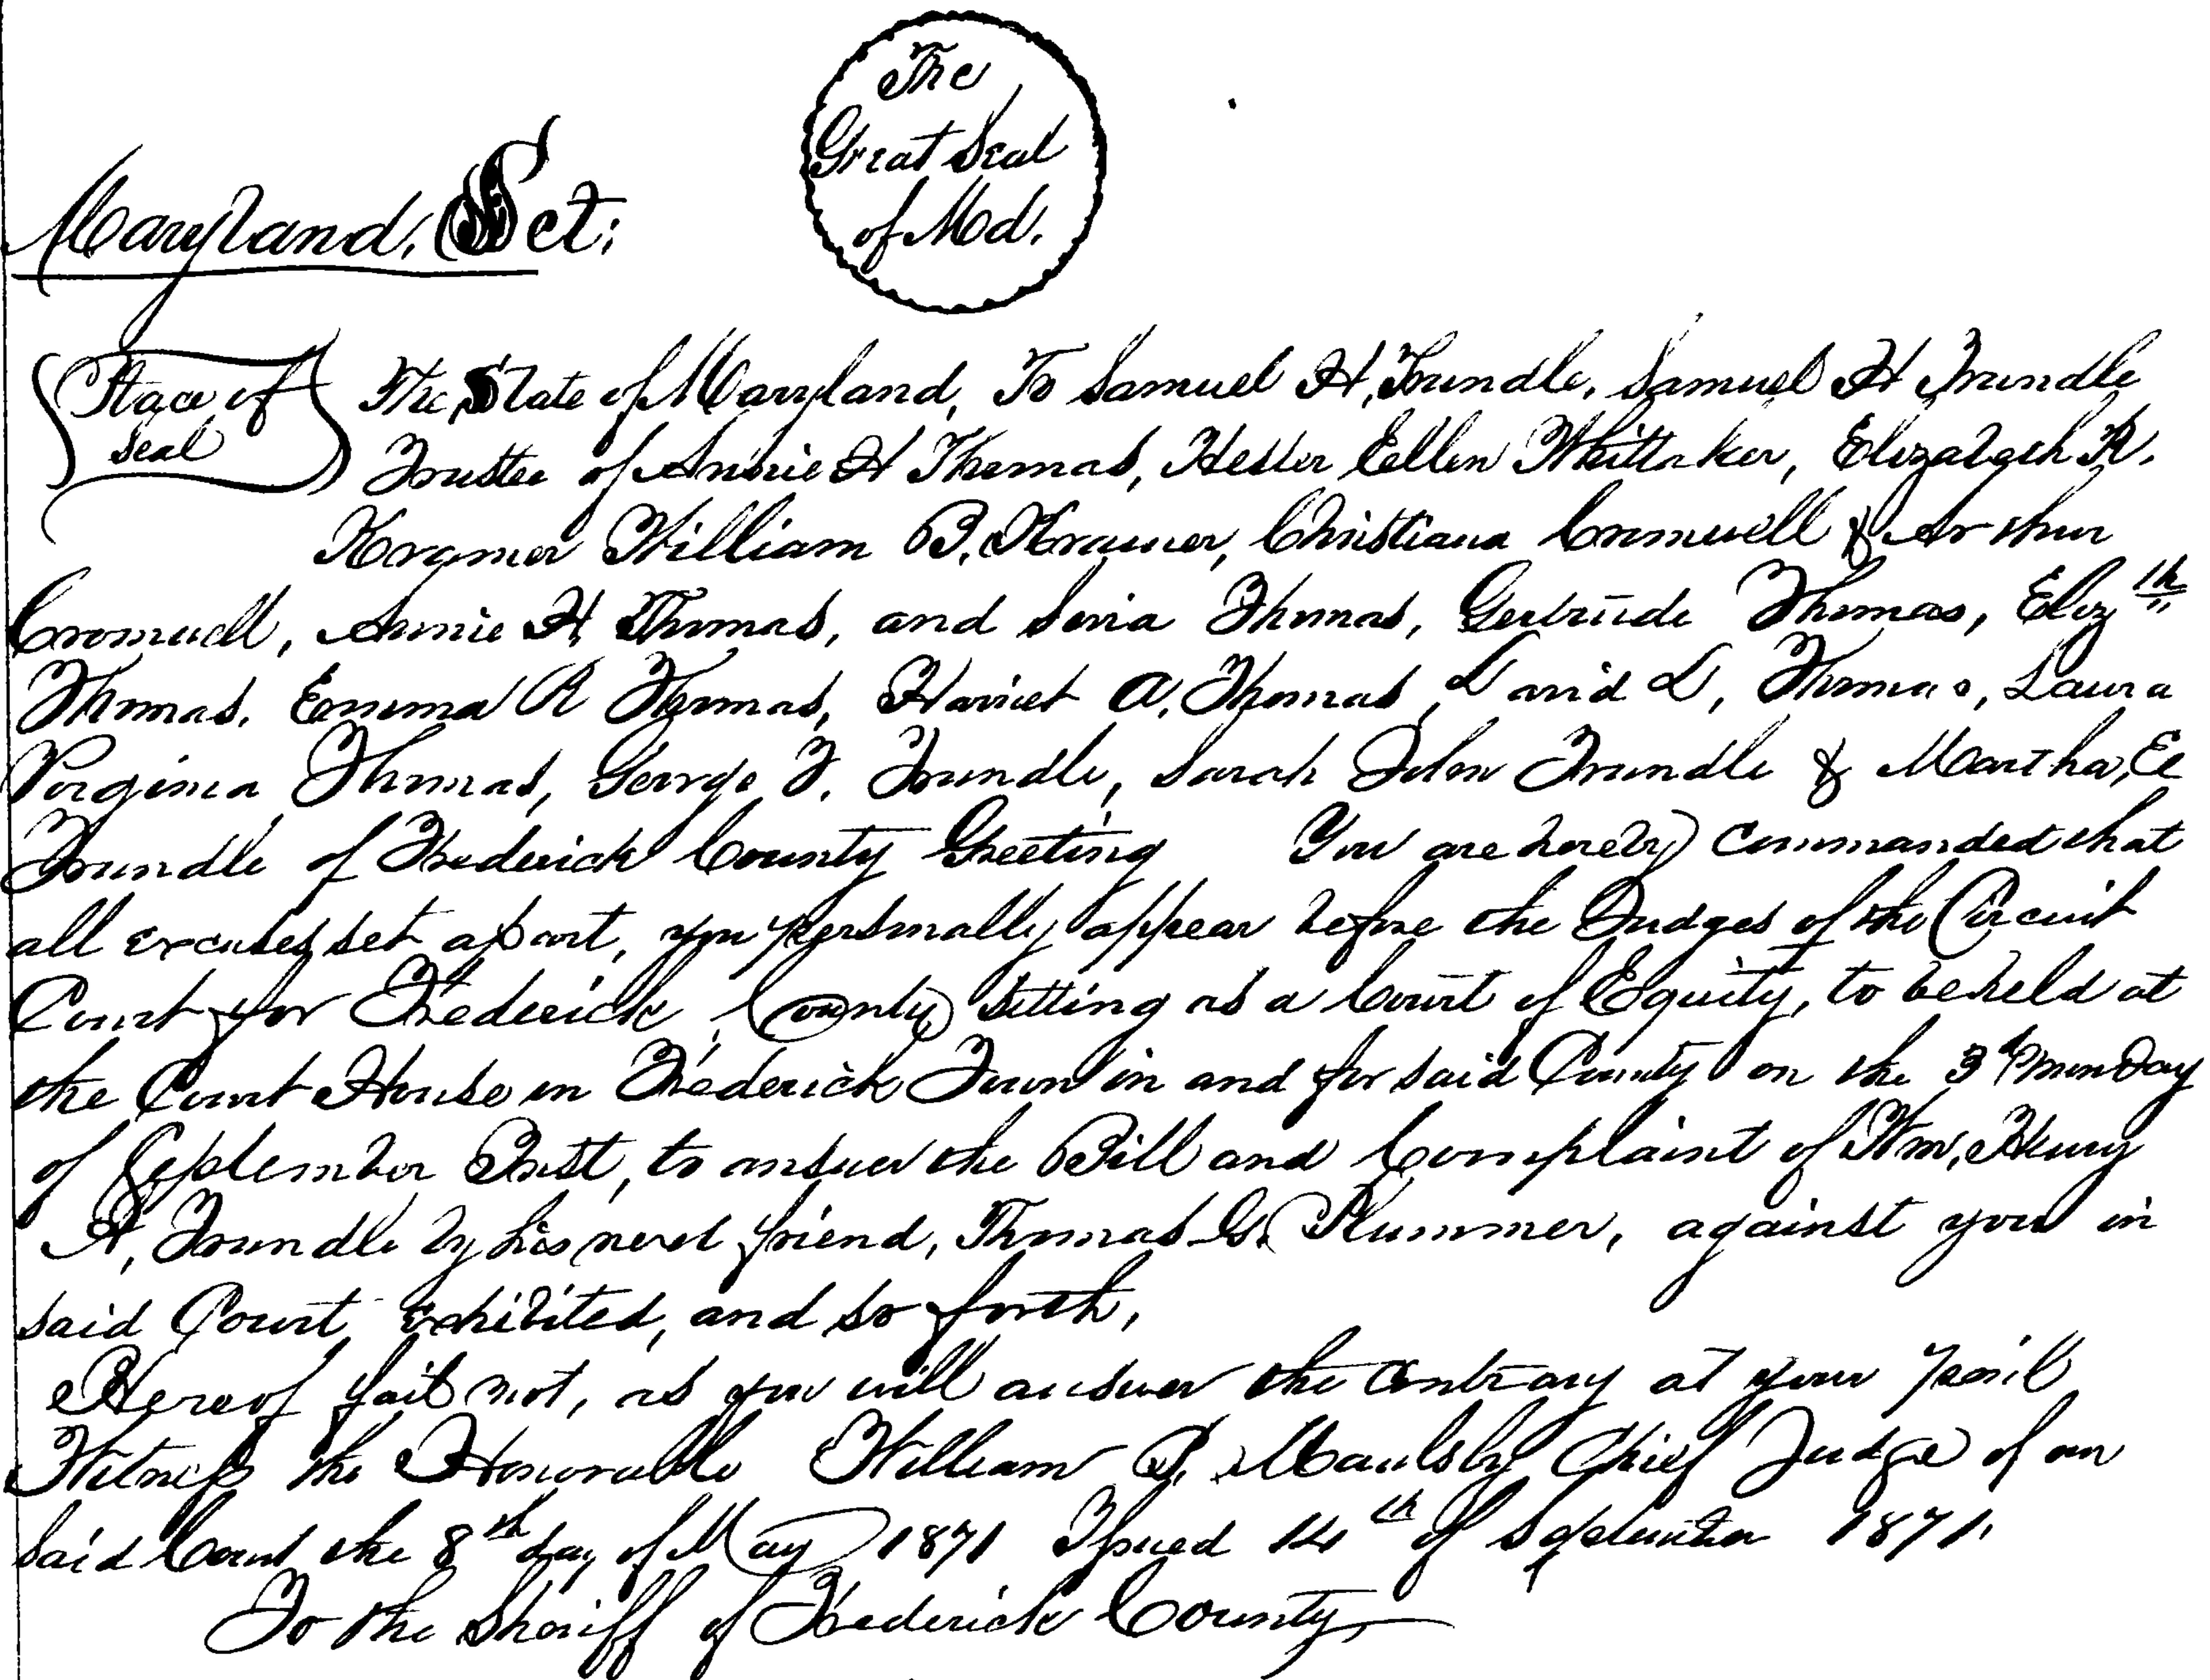 The
Great Seal
of Md.
Maryland, Sct:
Place of
Seal
The State of Maryland, To Samuel H, Trundle, Samuel H Trundle
Trustee of Annie H Thomas, Hester Ellen Whittaker, Elizabeth R.
Kramer William B, Kramer, Christiana Cromwell & Arthur
Cromwell, Annie H, Thomas, and Thomas, Gertrude Thomas, Eliz th
Thomas, Emma R Thomas, Harriet A, Thomas, David D, Thomas, Laura
Virginia Thomas, George T. Trundle, Sarah Trundle & Martha, E
Trundle of Frederick County Greeting You are hereby Commanded that
all excuses set apart, you personally appear before the Judges of the Circuit
Court for Frederick County Sitting as a Court of Equity, to be held at
the Court House in Frederick Town in and for said County on the 3d Monday
of September Inst, to answer the Bill and Complaint of Wm, Henry
A, Trundle by his next friend, Thomas G. Plummer, against you in
said Court exhibited, and so forth,
Hereof fail not, as you will answer the Contrary at your peril
Witness the Honorable William P. Maulsby Chief Judge of our
said Court the 8th day of May 1871 Issued 14th of September 1871
To the Sheriff of Frederick County